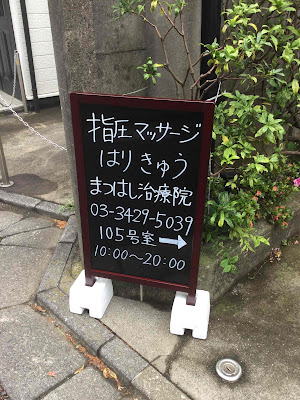 指圧マッサージ
はりきゅう
まつはし治療院
03-3429-5039
105号室→
10:00〜20:00